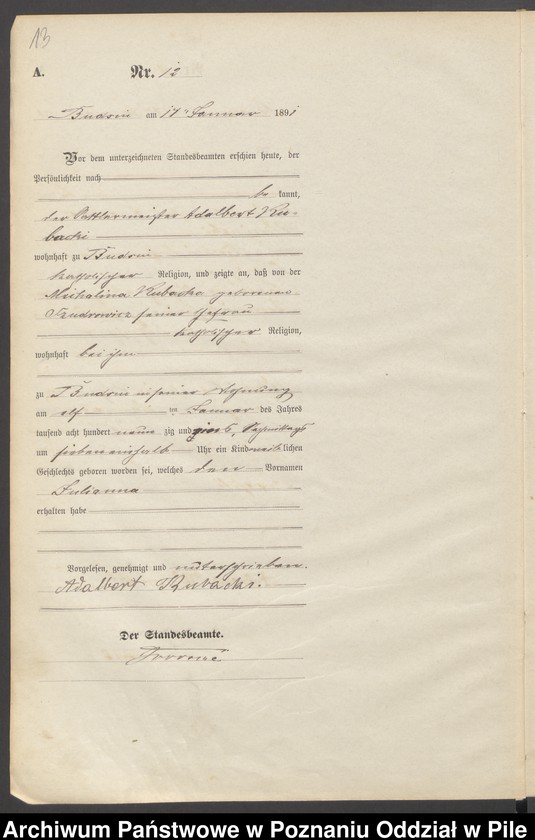 13
A. Nr. 12
Budsin am 17 Januar 1891
Vor dem unterzeichneten Standesbeamten erschien heute, der
Persönlichkeit nach
be kannt,
der Sattlermeister Adalbert Ku-
backi
wohnhaft zu Budsin
katholischer Religion, und zeigte an, daß von der
Michalina Kubacka geborenen
seiner Ehefrau
katholischer Religion,
wohnhaft bei ihm
zu Budsin in seiner Wohnung
am elf ten Januar des Jahres
tausend acht hundert neun zig und eins, Nachmittags
um sieben einhalb Uhr ein Kind weiblichen
Geschlechts geboren worden sei, welches den Vornamen
Julianna
erhalten habe
Vorgelesen, genehmigt und unterschrieben.
Adalbert Kubacki.
Der Standesbeamte.
Archiwum Państwowe w Poznaniu Oddział w Pile